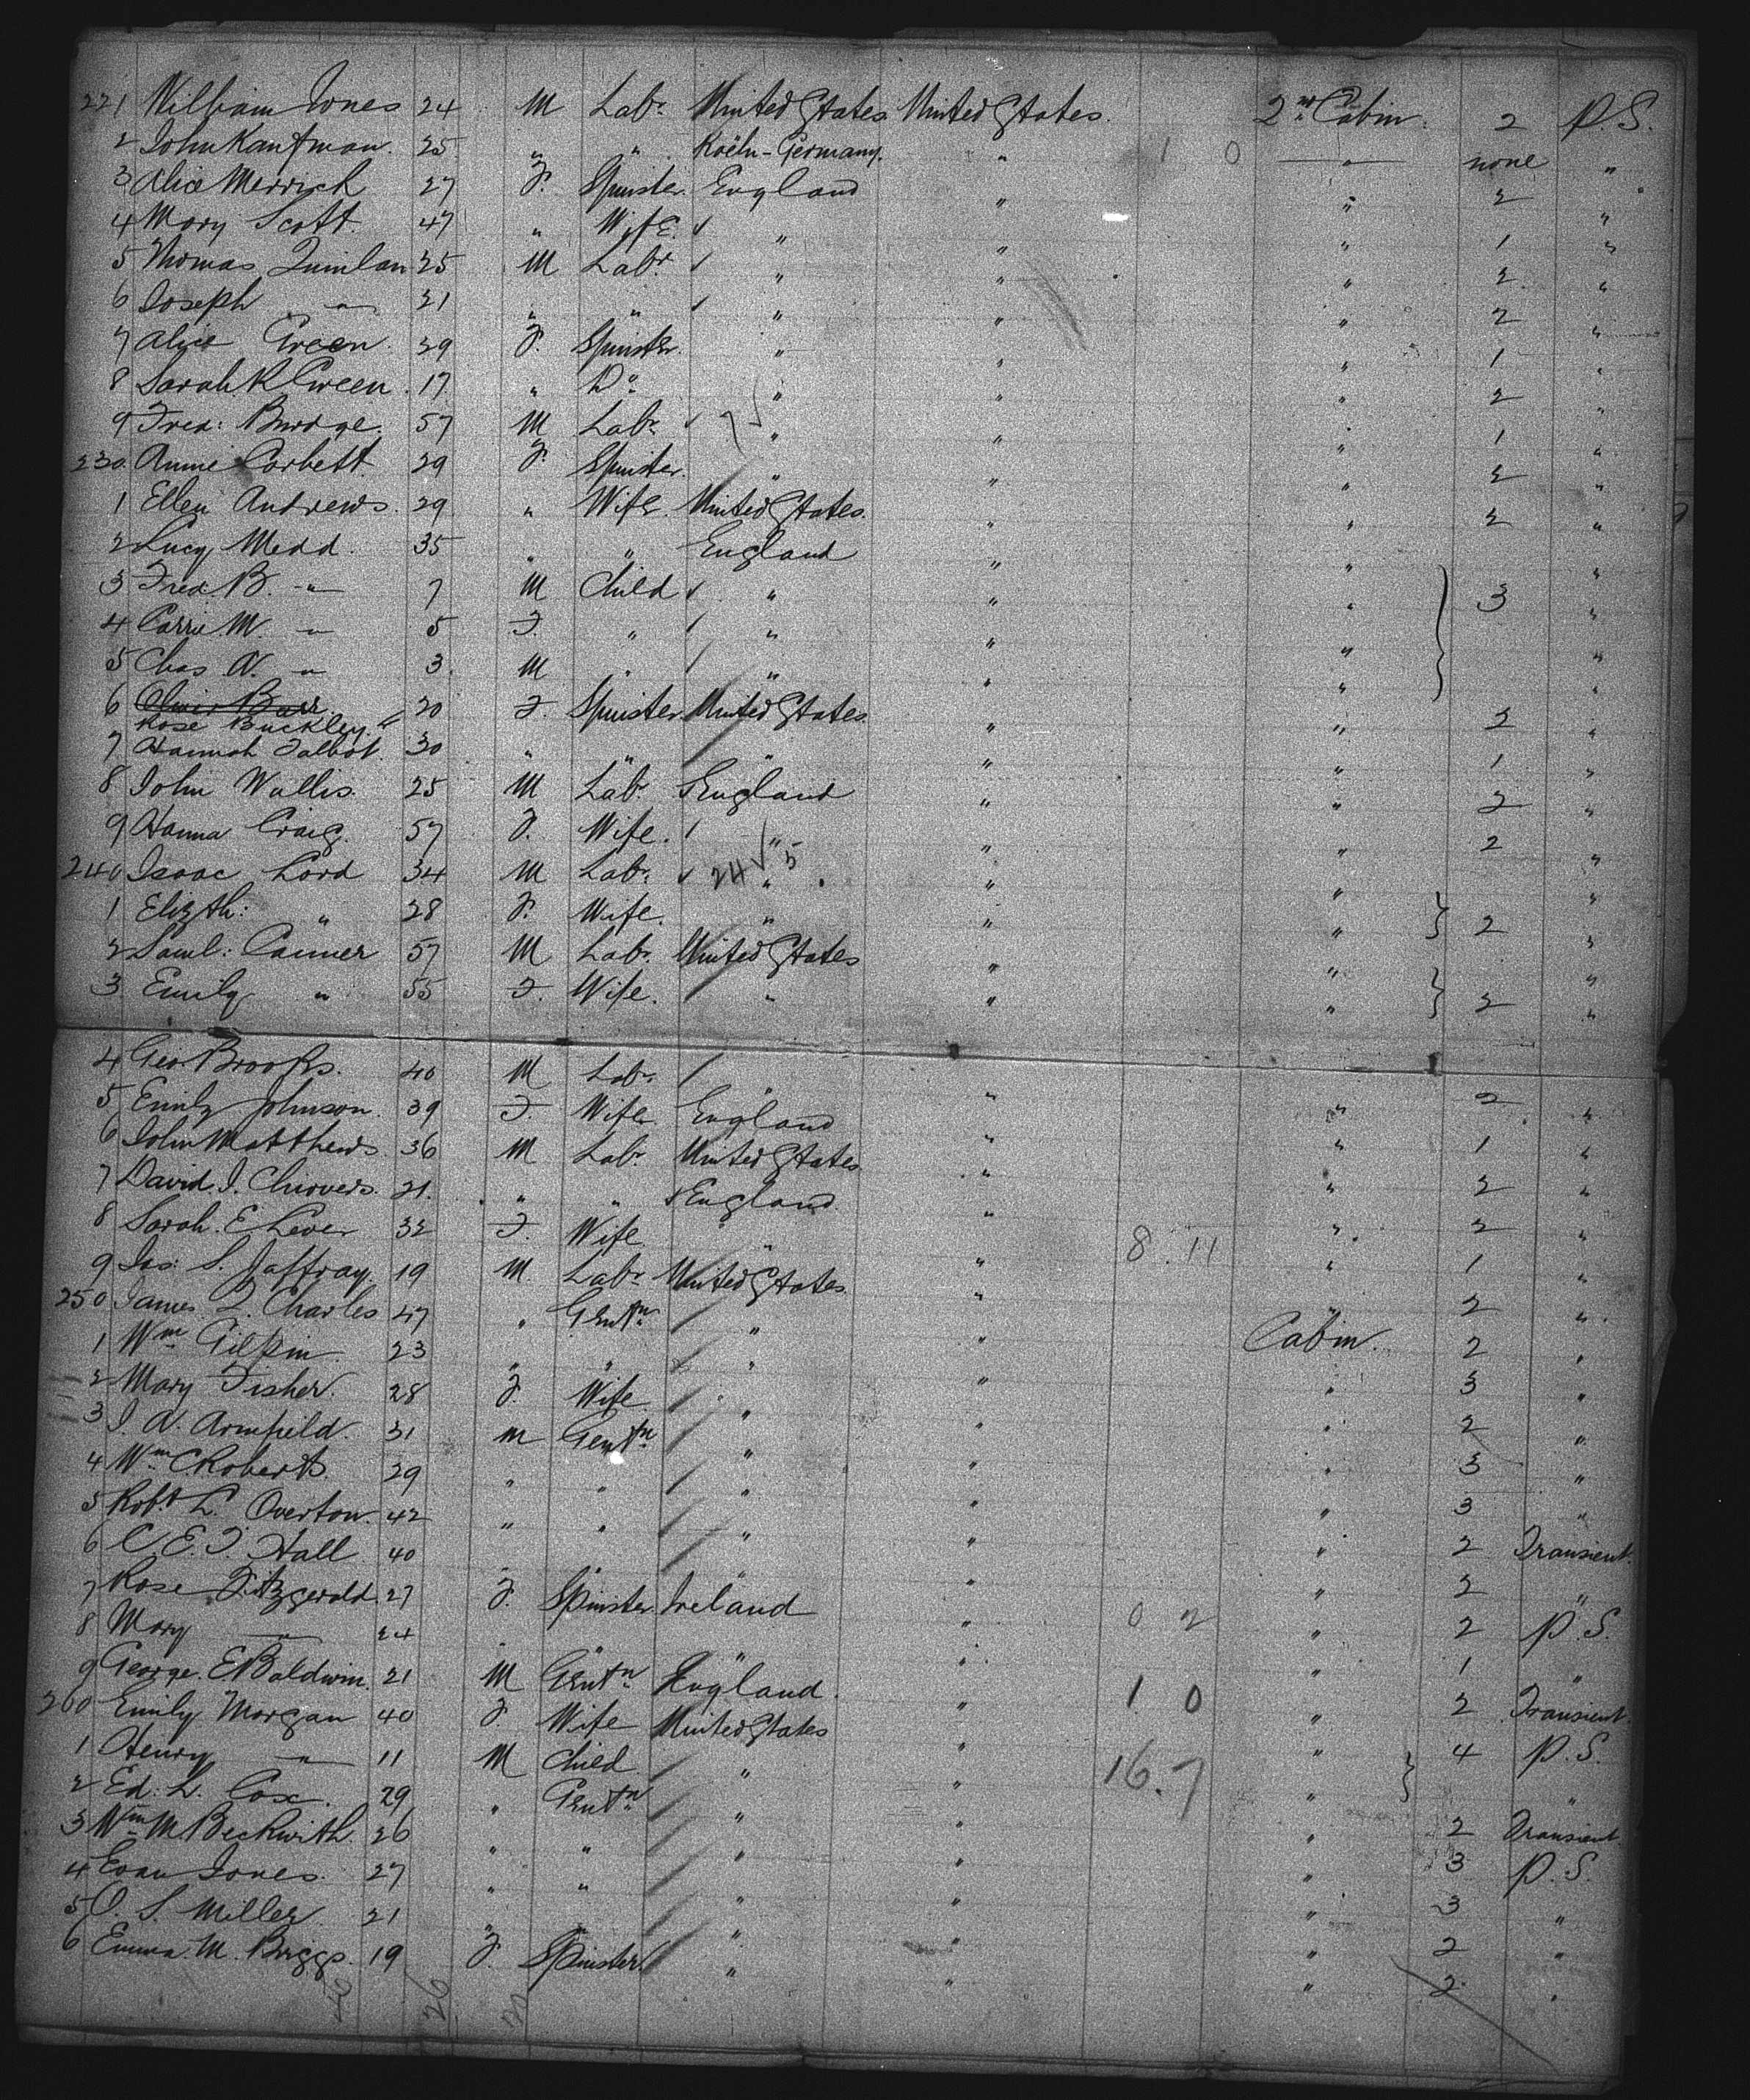 221 William Jones 24 M Labr. United States United States. 2nd Cabin. 2 P.S.
2 John Kaufman. 25 " " Koëln-Germany. " 1 0 " none "
3 Alice Merrick 27 F. Spinster. England " " 2 "
4 Mary Scott. 47 " Wife. ✓ " " " 1 "
5 Thomas Quinlan 25 M Labr. ✓ " " " 2 "
6 Joseph " 21 " " ✓ " " " 2 "
7 Alice Green. 29 F. Spinster. " " " 1 "
8 Sarah R Green. 17 " Do. " " " 2 "
9 Fred: Burdge. 57 M Labr. ✓ " " " 1 "
230. Annie Corbett 29 F. Spinster. " " " 2 "
1 Ellen Andrews. 29 " Wife. United States. " " 2 "
2 Lucy Medd. 35 " " England " " "
3 Fred. B. " 7 M Child ✓ " " " 3 "
4 Carrie M. " 5 F. " ✓ " " " "
5 Chas N. " 3. M " ✓ " " " "
6 20 F. Spinster. United States. " " 2 "
Rose Buckley.
7 Hannah Talbot. 30 " " " " " 1 "
8 John Wallis. 25 M Labr. ✓ England " " 2 "
9 Hanna Craig. 57 F. Wife. ✓ " " " 2 "
240 Isaac Lord 34 M Labr. ✓ 24 ✓ 5 " " " "
1 Elizth: " 28 F. Wife. " " " 2 "
2 Saml: Canner 57 M Labr. United States " " "
3 Emily " 55 F. Wife. " " " 2 "
4 Geo. Brooks. 40 M Labr. " " " 2 "
5 Emily Johnson. 39 F. Wife. England " " 1 "
6 John Matthews. 36 M Labr. United States " " 2 "
7 David J. Chivers. 21. " " ✓ England " " 2 "
8 Sarah. E Lever 32 F. Wife " " 8.11 " 1 "
9 Jas: S. Jaffray. 19 M. Labr. United States. " " 2 "
250 James Charles 47 " Gentn. " " Cabin. 2 "
1 Wm Gilpin. 23 " " " " " 3 "
2 Mary Fisher. 28 F. Wife. " " " 2 "
3 J. N. Armfield. 31 M Gentn. " " " 3 "
4 Wm C. Roberts. 29 " " " " " 3 "
5 Robt L. Overton. 42 " " " " " 2 Transient.
6 C. E. T. Hall 40 " " " " " 2 "
7 Rose Fitzgerald. 27 F. Spinster. Ireland " 0 2 " 2 P.S.
8 Mary " 24 " " " " " 1 "
9 George. E Baldwin. 21 M Gentn. England. " 1 0 " 2 Transient.
260 Emily Morgan 40 F. Wife United States " " 4 P.S.
1 Henry " 11 M Child " " 16.7 " "
2 Ed: L. Cox. 29 " Gentn. " " " 2 Transient
3 Wm M Beckwith. 26 " " " " " 3 P.S.
4 Evan Jones. 27 " " " " " 3 "
5 O. S. Miller. 21 " " " " " 2 "
6 Emma. M. Briggs. 19 F. Spinster. " " " 2 "
26